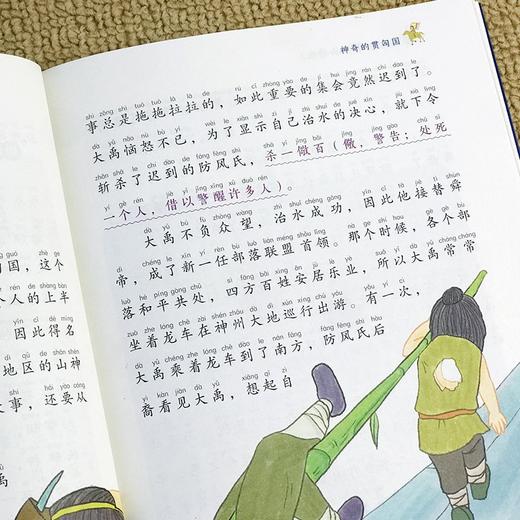 神奇的贯匈国
事总是拖拖拉拉的，如此重要的集会竟然迟到了。
大禹恼怒不已，为了显示自己治水的决心，就下令
斩杀了迟到的防风氏，杀一儆百（儆，警告；处死
一个人，借以警醒许多人）。
大禹不负众望，治水成功，因此他接替舜
帝，成了新一任部落联盟首领。那个时候，各个部
落和平共处，四方百姓安居乐业，所以大禹常常
坐着龙车在神州大地巡行出游。有一次，
大禹乘着龙车到了南方，防风氏后
裔看见大禹，想起自
国，这个
个人的上半
因此得名
地区的山神
事，还要从